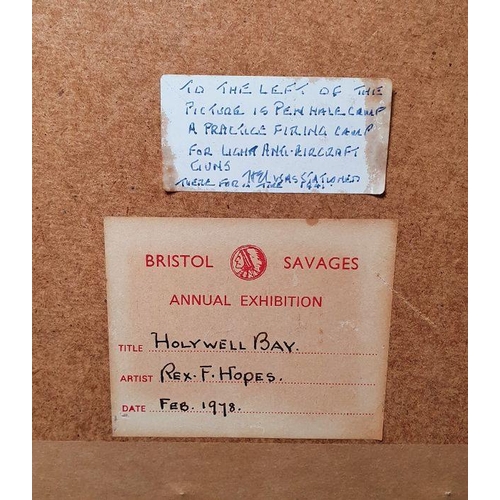 TO THE LEFT OF THE
PICTURE IS PENHALE CAMP
A PRACTICE FIRING CAMP
FOR LIGHT ANTI-AIRCRAFT
GUNS WAS STATIONED
THERE FOR A TIME
BRISTOL SAVAGES
ANNUAL EXHIBITION
TITLE HOLYWELL BAY.
ARTIST REX. F. HOPES.
DATE FEB. 1978.